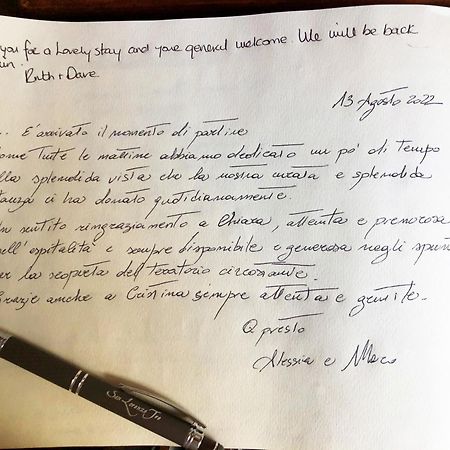 you for a lovely stay and your general welcome. We will be back
Ruth + Dave
13 Agosto 2022
... È arrivato il momento di partire
ome tutte le mattine abbiamo dedicato un po' di tempo
lla splendida vista che la nostra curata e splendida
tanza ci ha donato quotidianamente.
Un sentito ringraziamento a Chiara, attenta e premurosa
nell'ospitalità e sempre disponibile e generosa negli spun
er la scoperta del territorio circostante.
Grazie anche a Cristina sempre attenta e gentile.
A presto
Alessia e Marco